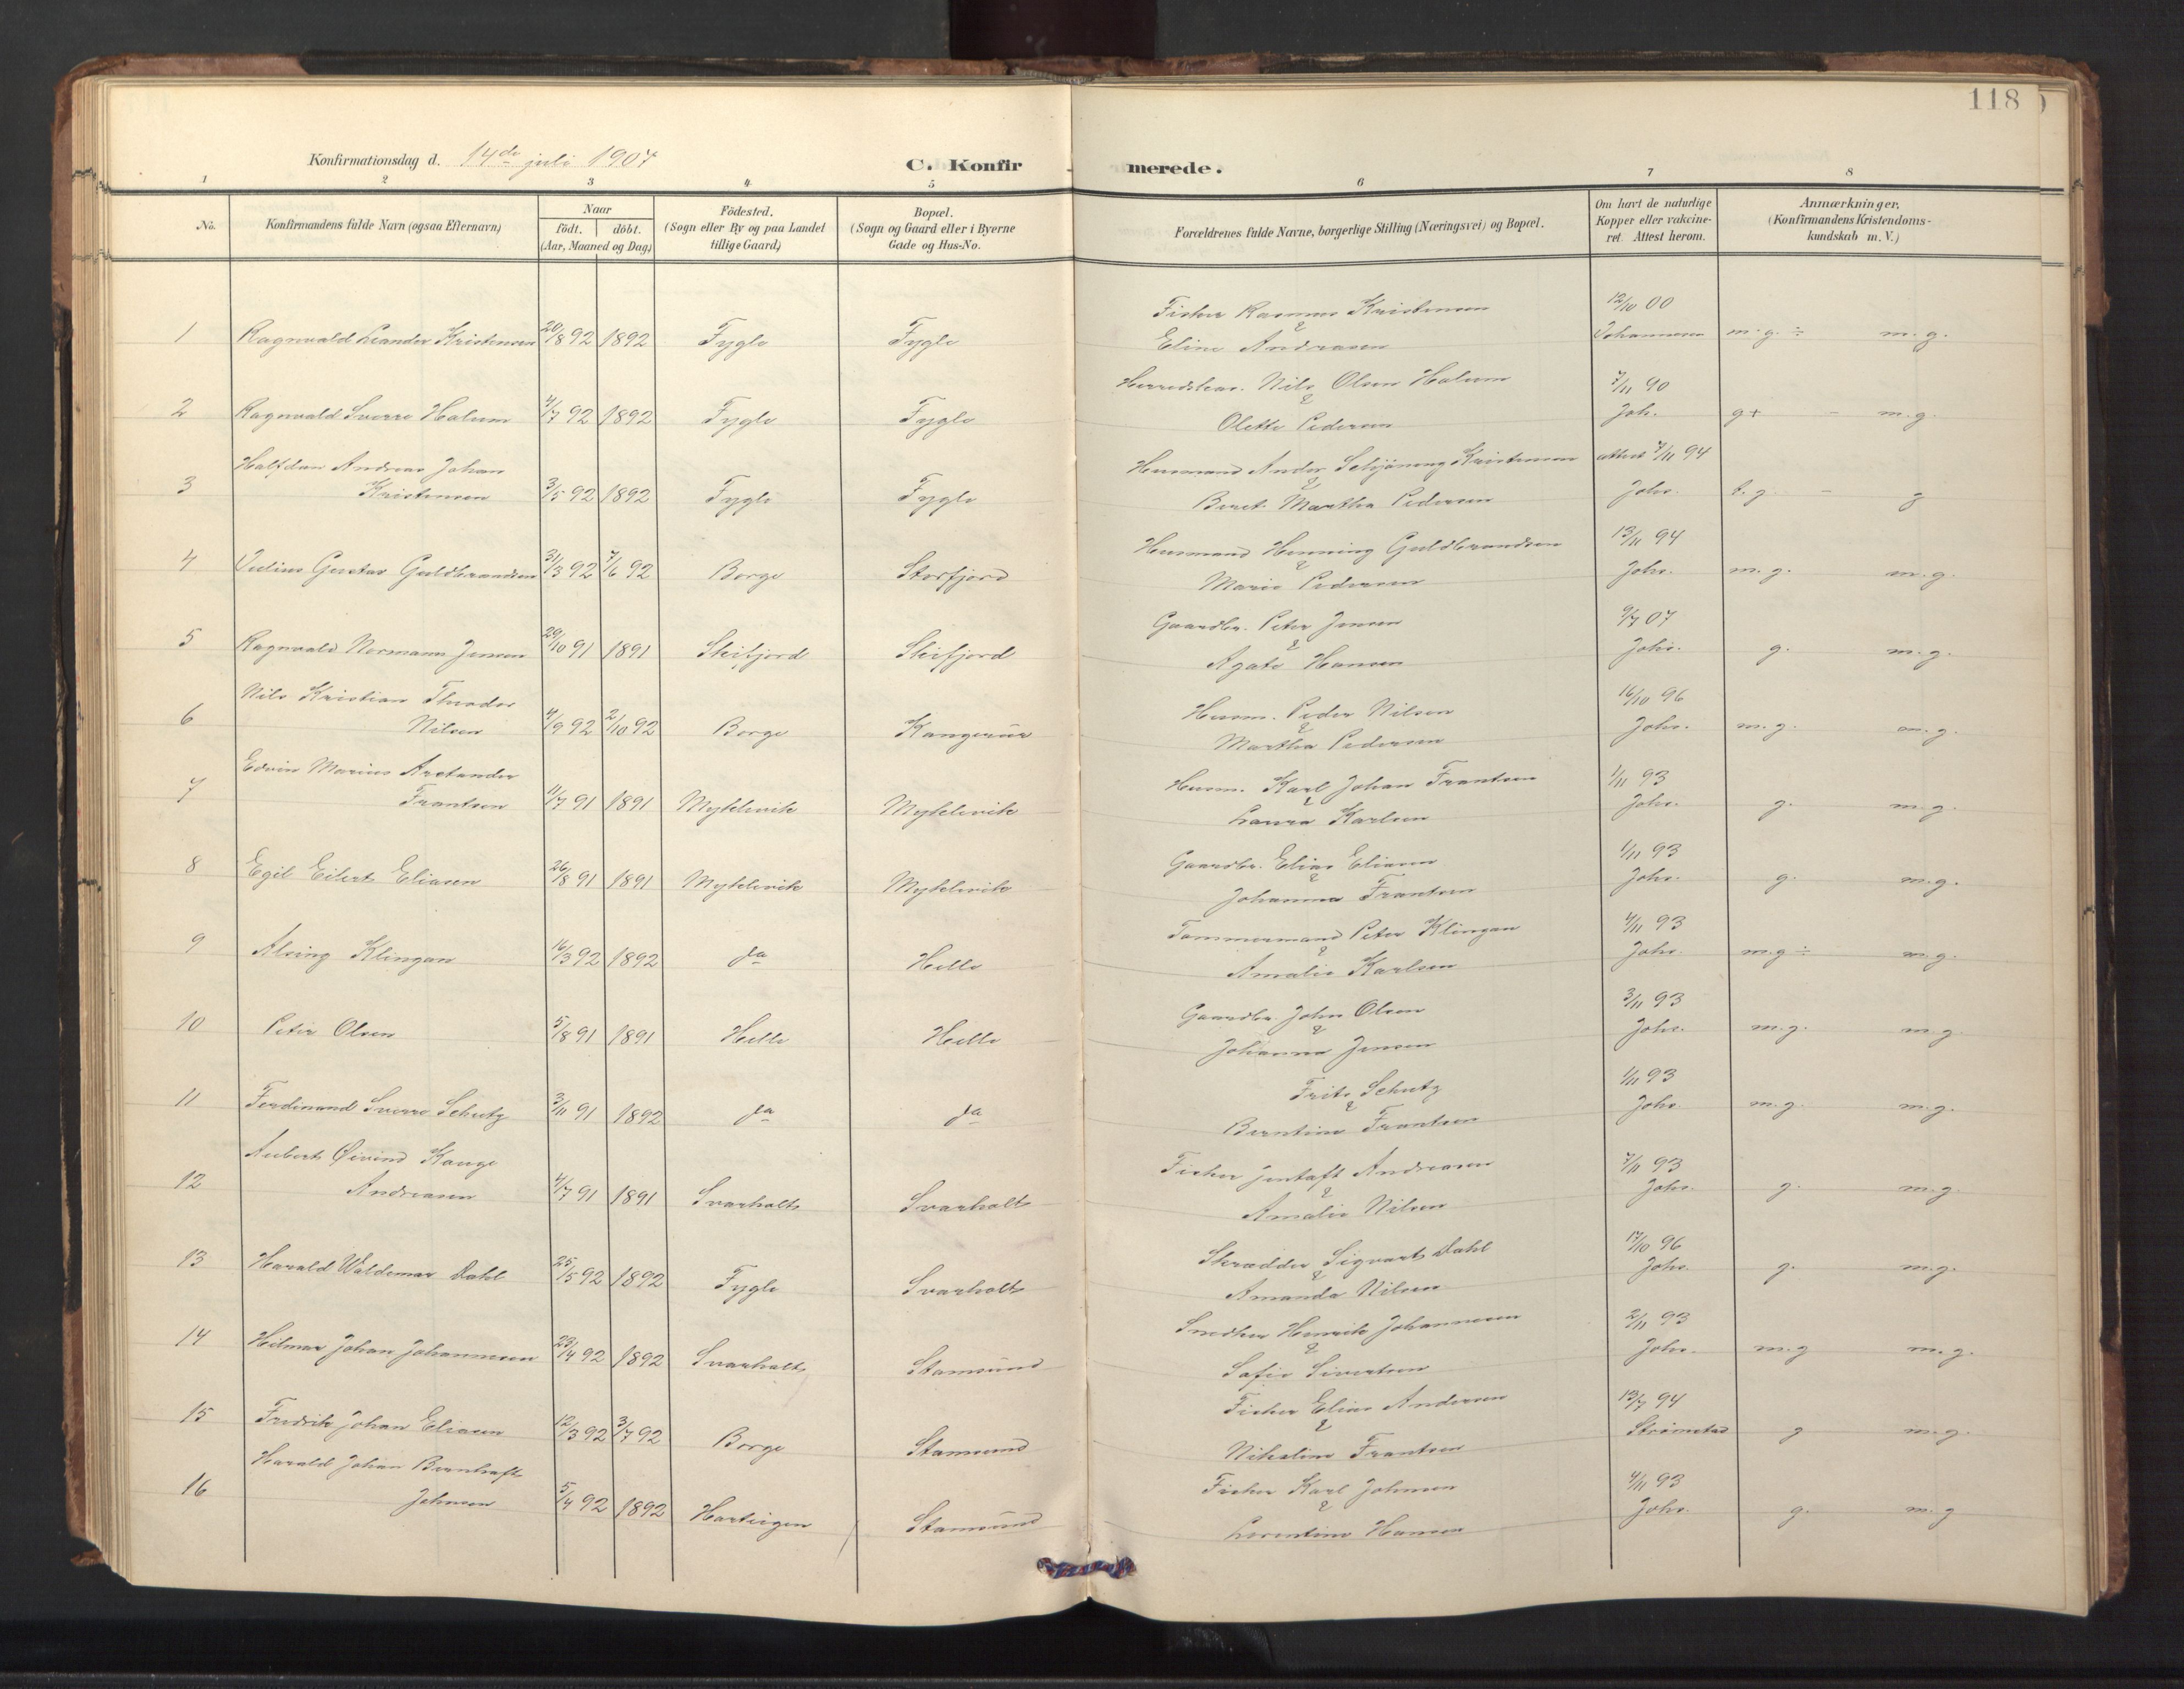 118
Konfirmationsdag d. 14de juli 1907
C. Konfirmerede.
1 2 3 4 5 6 7 8
No.
Konfirmandens fulde Navn (ogsaa Efternavn)
Naar
født. døbt.
(Aar, Maaned og Dag)
Fødested.
(Sogn eller By og paa Landet
tillige Gaard)
Bopæl.
(Sogn og Gaard eller i Byerne
Gade og Hus-No.
Forældrenes fulde Navne, borgerlige Stilling (Næringsvei) og Bopæl.
Om havt de naturlige
Kopper eller vakcine-
ret. Attest herom.
Anmærkninger,
(Konfirmandens Kristendoms-
kundskab m. V.)
Fisker Rasmus Kristensen 12/10 00
1 Ragnvald Leander Kristensen 20/8 92 1892 Fygle Fygle & Johannesen m.g. ÷ m.g.
Eline Andreasen
Nils Olsen Halum 7/11 90
2 Ragnvald Sverre Halum 4/7 92 1892 Fygle Fygle & Joh. g+ - m.g.
Olette Pedersen
Halfdan Andreas Johan Husmand Ander Schjönning Kristensen attest 7/11 94
3 Kristensen 3/5 92 1892 Fygle Fygle & Johs. t.g. - g
Beret Martha Pedersen
Husmand Henning Guldbrandsen 13/11 94
4 Julius Gustav Guldbrandsen 31/3 92 7/6 92 Borge Storfjord & Johs. m.g. m.g.
Marie Pedersen
Gaardbr. Peter Jensen 9/7 07
5 Ragnvald Normann Jensen 29/10 91 1891 Skifjord Skifjord & Johs. g. m.g.
Agate Hansen
Nils Kristian Theodor Husm. Peder Nilsen 16/10 96
6 Nilsen 4/9 92 2/10 92 Borge Kangerur & Johs. m.g. m.g.
Martha Pedersen
Edvin Marius Aretander Husm. Karl Johan Frantsen 1/11 93
7 Frantsen 11/7 91 1891 Myklevik Myklevik & Johs. g. m.g.
Laura Karlsen
Gaardbr. Elias Eliasen 1/11 93
8 Egil Eilert Eliasen 26/8 91 1891 Myklevik Myklevik & Johs. g. m.g.
Johanna Frantsen
Tømmermand Peter Klingan 4/11 93
9 Alving Klingan 16/3 92 1892 da Helle & Johs. m.g ÷ m.g.
Amalie Karlsen
Gaardbr. John Olsen 3/11 93
10 Peter Olsen 5/8 91 1891 Helle Helle & Johs. m.g. m.g.
Johanna Jensen
Frits Schutz 1/11 93
11 Ferdinand Sverre Schutz 3/11 91 1892 da da & Johs. m.g. m.g.
Berntine Frantsen
Aubert Øivind Kauge Fisker Jentoft Andreasen 7/11 93
12 Andreasen 4/7 91 1891 Svarholt Svarholt & Johs. g. m.g.
Amalie Nilsen
Skrædder Sigvart Dahl 17/10 96
13 Harald Waldemar Dahl 25/5 92 1892 Fygle Svarholt & Johs. g. m.g.
Amanda Nilsen
Snedker Henrik Johannesen 2/11 93
14 Hilmar Johan Johannesen 23/4 92 1892 Svarholt Stamsund & Johs. m.g m.g.
Sofie Sivertsen
Fisker Elias Andersen 13/7 94
15 Fredrik Johan Eliasen 12/3 92 3/7 92 Borge Stamsund & Strømstad g m.g.
Nikoline Frantsen
Harald Johan Bernhoft Fisker Karl Johnsen 4/11 93
16 Johnsen 5/4 92 1892 Hartvigen Stamsund & Johs. g. m.g
Lorentine Hansen